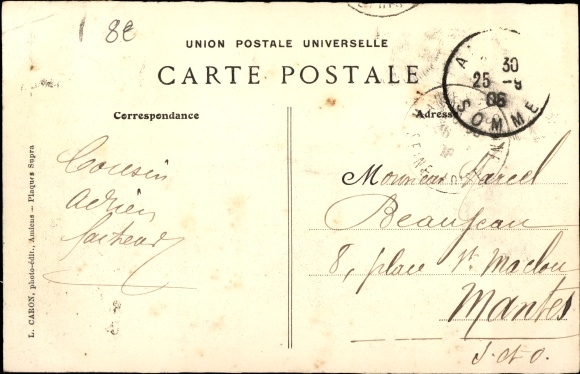 8€
UNION POSTALE UNIVERSELLE
CARTE POSTALE
30
25 - 9
06
SOMME
Correspondance
Adresse
Cousin
Adrien
Monsieur Marcel
Beaujean
8, place St. Maclou
Mantes
S. et O.
L. CARON, photo-édit., Amiens — Plaques Supra